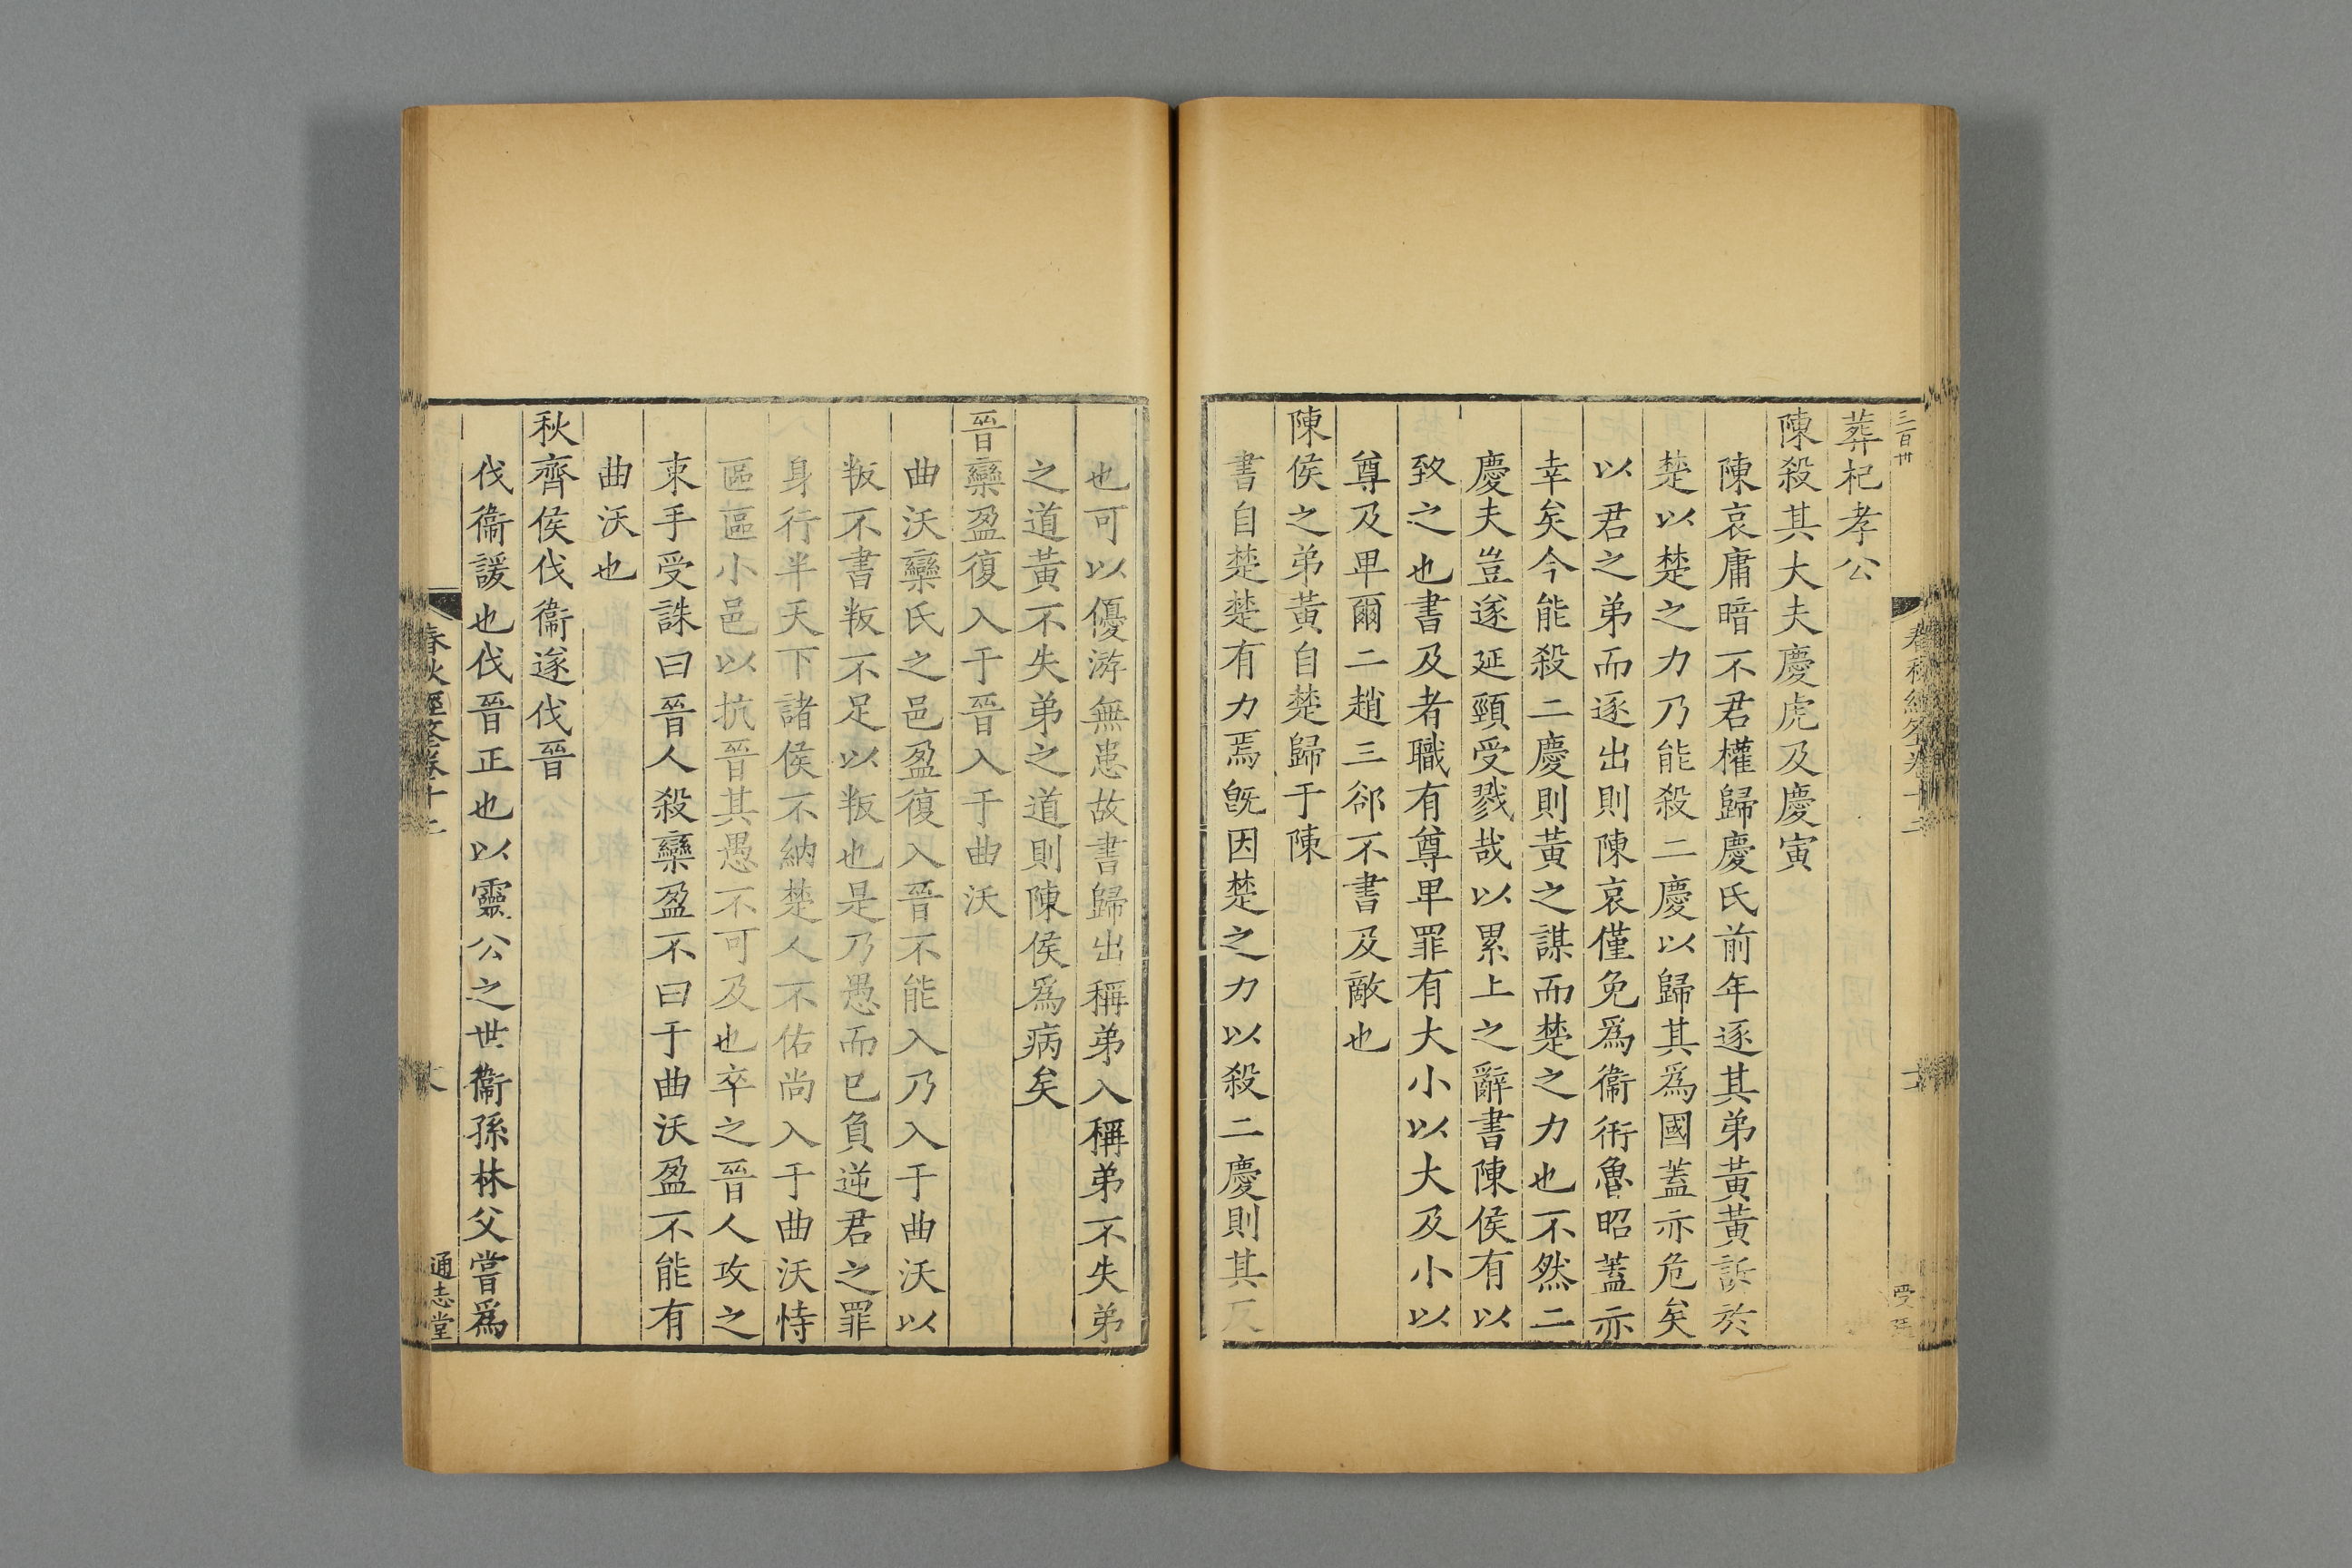 三百卅
葬杞孝公
陳殺其大夫慶虎及慶寅
陳哀庸暗不君權歸慶氏前年逐其弟黃黃訴於
楚以楚之力乃能殺二慶以歸其爲國蓋亦危矣
以君之弟而逐出則陳哀僅免爲衞衎魯昭蓋亦
幸矣今能殺二慶則黃之謀而楚之力也不然二
慶夫豈遂延頸受戮哉以累上之辭書陳侯有以
致之也書及者職有尊卑罪有大小以大及小以
尊及卑爾二趙三郤不書及敵也
陳侯之弟黃自楚歸于陳
書自楚楚有力焉旣因楚之力以殺二慶則其反
也可以優游無患故書歸出稱弟入稱弟不失弟
之道黃不失弟之道則陳侯爲病矣
晉欒盈復入于晉入于曲沃
曲沃欒氏之邑盈復入晉不能入乃入于曲沃以
叛不書叛不足以叛也是乃愚而已負逆君之罪
身行半天下諸侯不納楚人不佑尚入于曲沃恃
區區小邑以抗晉其愚不可及也卒之晉人攻之
束手受誅曰晉人殺欒盈不曰于曲沃盈不能有
曲沃也
秋齊侯伐衞遂伐晉
伐衞諼也伐晉正也以靈公之世衞孫林父嘗爲
春秋經筌卷十二
通志堂